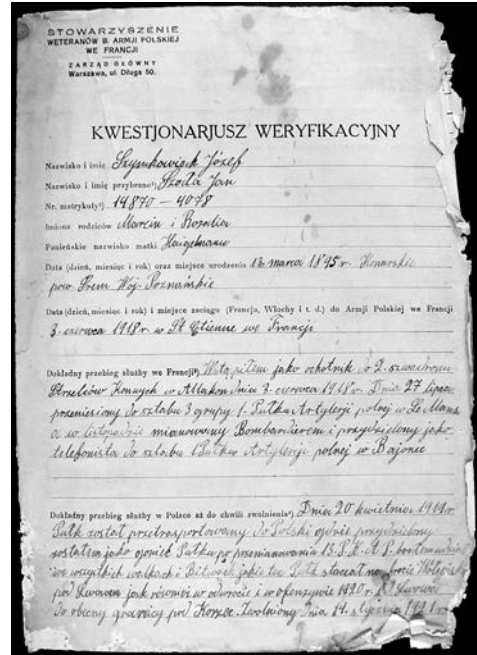 STOWARZYSZENIE
WETERANÓW B. ARMJI POLSKIEJ
WE FRANCJI
ZARZĄD GŁÓWNY
Warszawa, ul. Długa 50.
KWESTJONARJUSZ WERYFIKACYJNY
Nazwisko i imię Szymkowiack Józef
Nazwisko i imię przybrane¹) Szoła Jan
Nr. matrykuły²) 14870 – 4078
Imiona rodziców Marcin i Rozalia
Panieńskie nazwisko matki
Data (dzień, miesiąc i rok) oraz miejsce urodzenia marca 1895 r. Konarskie
pow Śrem Woj. Poznańskie
Data (dzień, miesiąc i rok) i miejsce zaciągu (Francja, Włochy i t. d.) do Armji Polskiej we Francji
3. czerwca 1918 r. w St Etienne we Francji
Dokładny przebieg służby we Francji³) Wstąpiłem jako ochotnik do 2. szwadronu
Strzelców Konnych w dnia 3. czerwca 1918 r. Dnia 27 lipca
przeniesiony do sztabu 3 grupy 1. Pułku Artylerji polnej w Le Mans
a w listopadzie mianowany Bombardierem i przydzielony jako
telefonista do sztabu 1 Pułku Artylerji polnej w
Dokładny przebieg służby w Polsce aż do chwili zwolnienia⁴) Dnia 20 kwietnia 1919 r.
Pułk został przetransportowany do Polski gdzie przydzielony
zostałem jako ogniet Pułku po przemianowaniu 13. P. K. A. P.
we wszystkich walkach i Bitwach jakie ten Pułk staczał na froncie
pod Lwowem jak również w odwrocie i w ofenzywie 1920 r. Lwowa
do obecnej granicy pod Korzec. Zwolniony dnia 14. stycznia 1921 r.